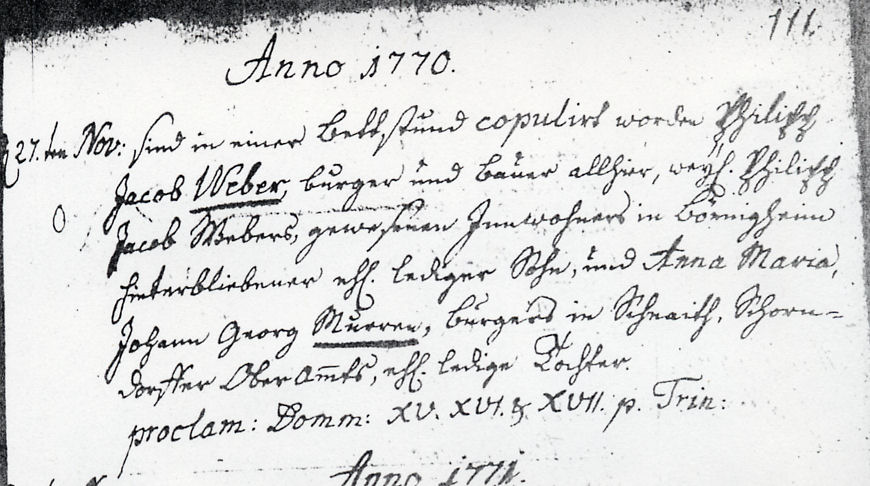 111.
Anno 1770.
27.ten Nov: sind in einer Bettstund copulirt worden Philipp
Jacob Weber, burger und bauer allhier, weyl. Philipp
Jacob Webers, gewesenen Innwohners in Bönnigheim
hinterbliebener ehl. lediger Sohn, und Anna Maria,
Johann Georg Murren, burgers in Schnaith, Schorn=
dorffer Ober Ammts, ehl. ledige Tochter.
proclam: Domm: XV. XVI. & XVII. p. Trin:
Anno 1771.